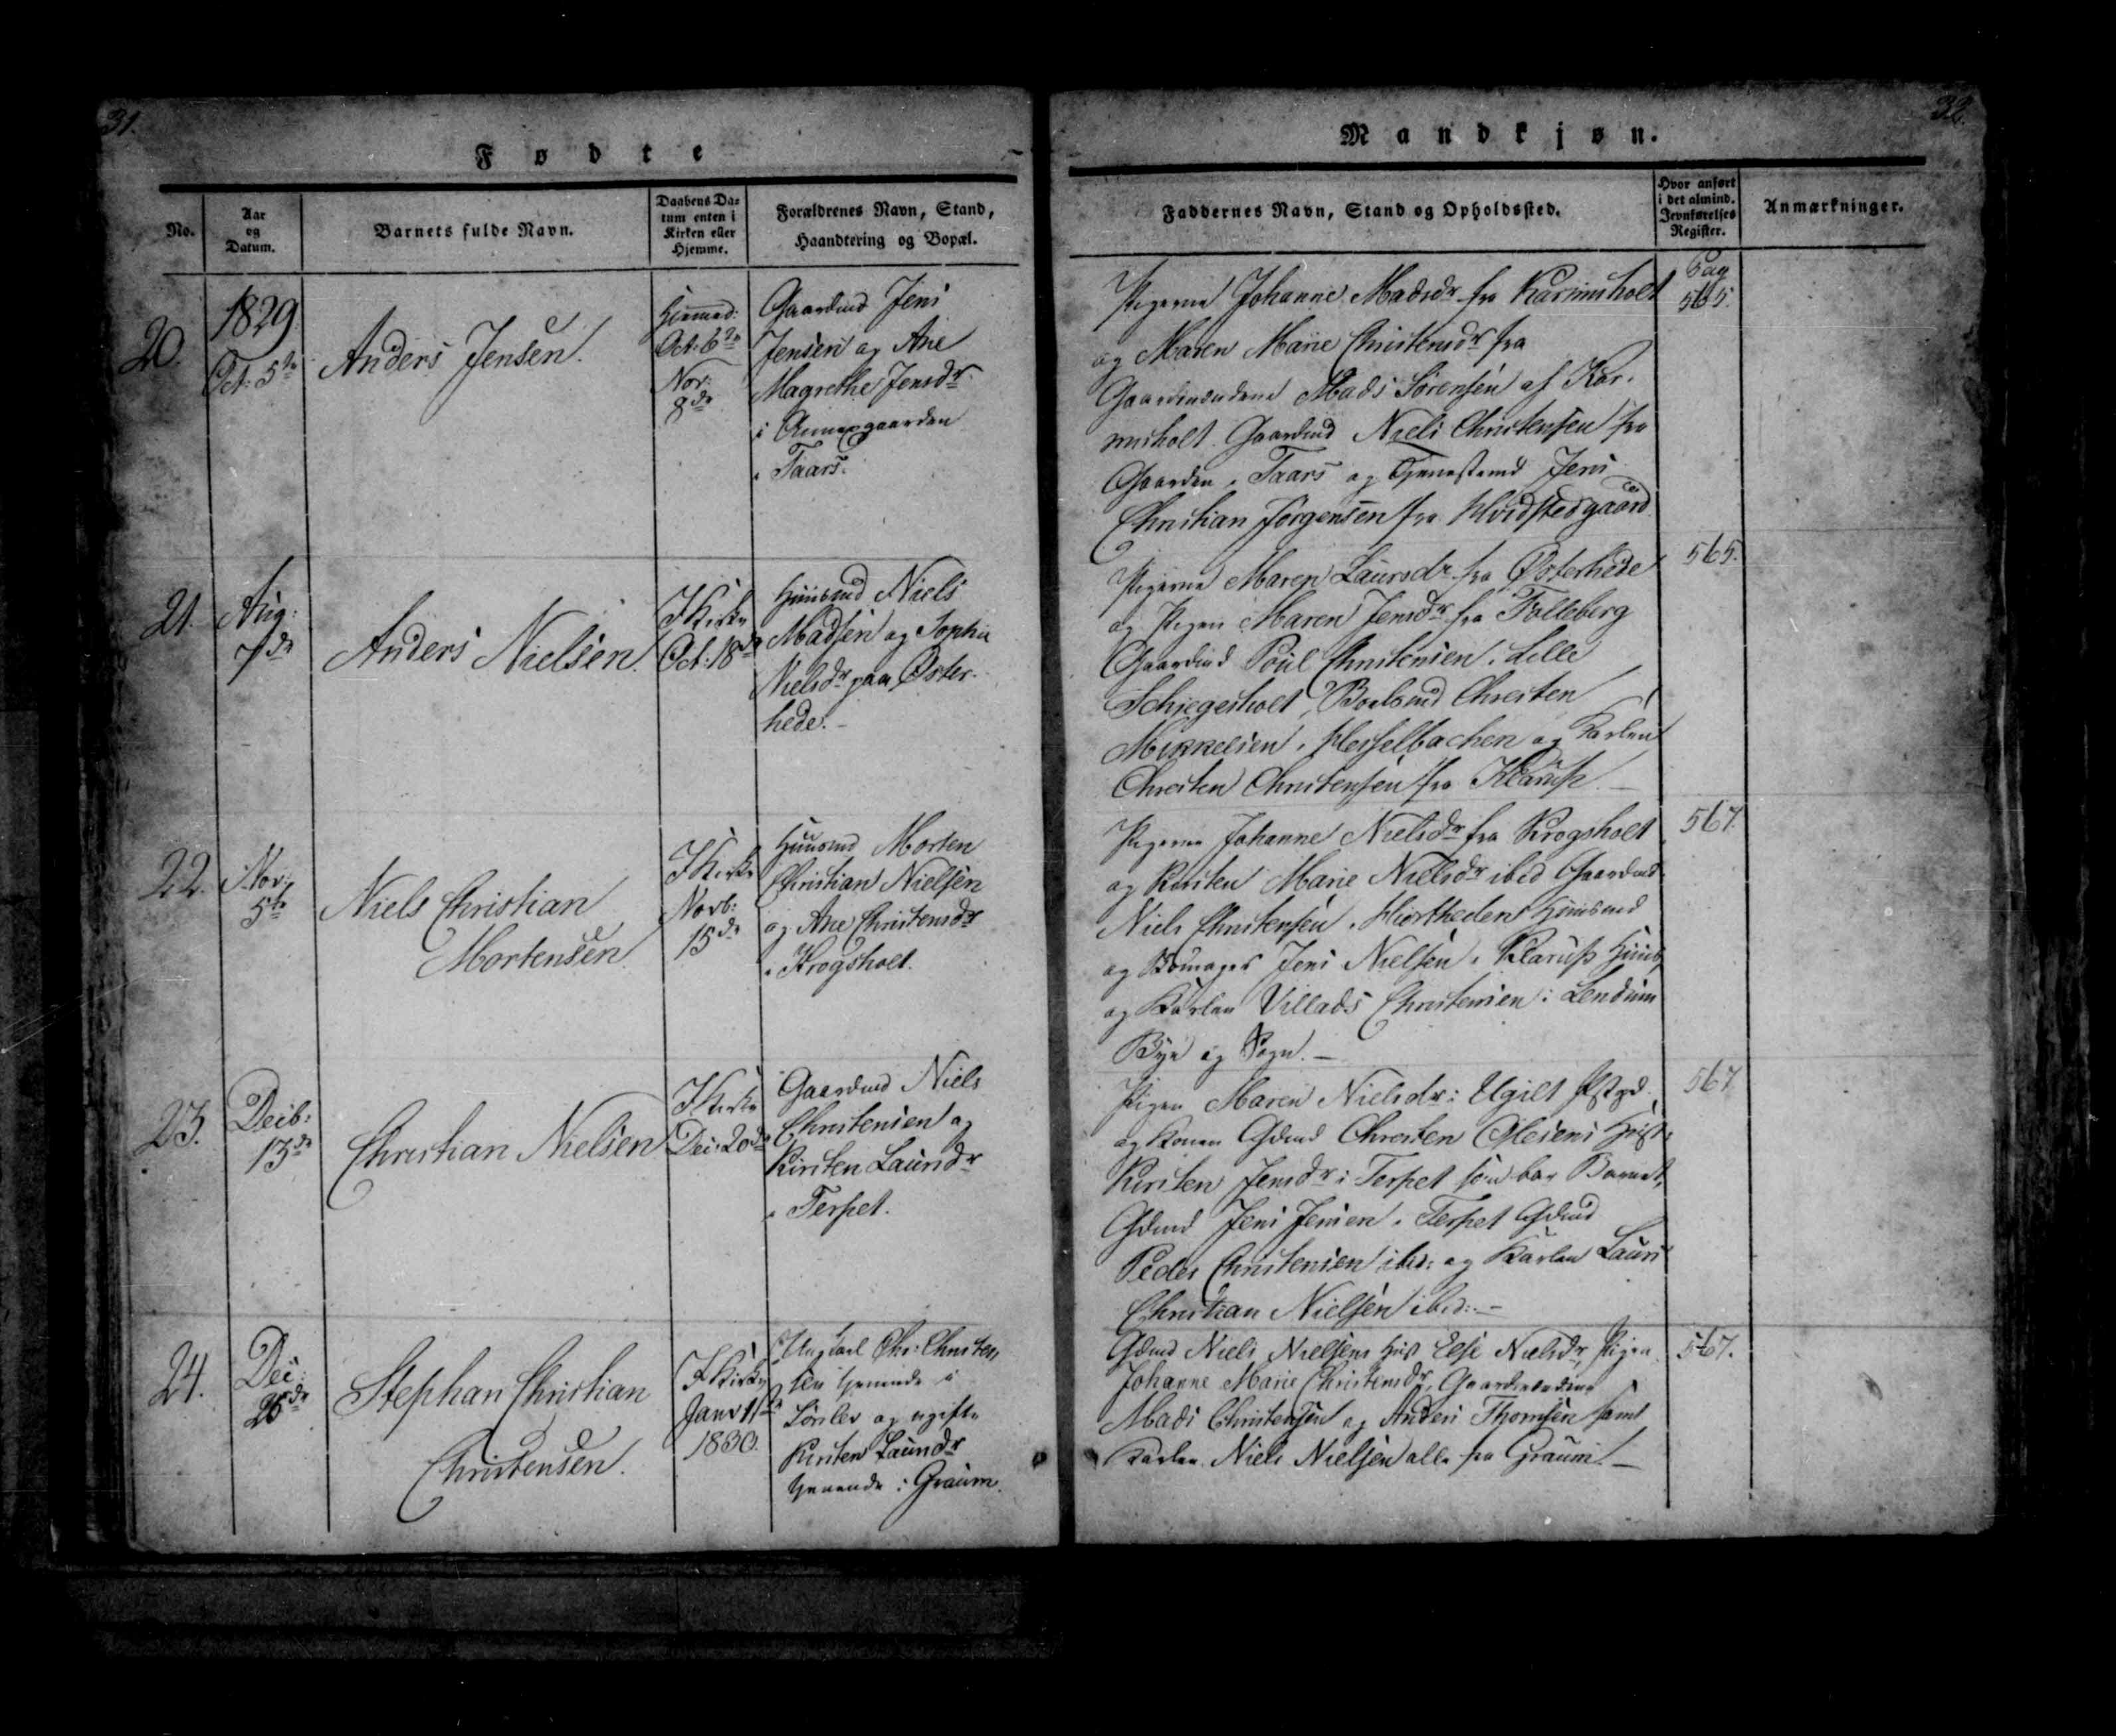 31.
Fødte
No.
Aar
og
Datum.
Barnets fulde Navn.
Daabens Da-
tum enten i
Kirken eller
Hjemme.
Forældrenes Navn, Stand,
Haandtering og Bopæl.
20.
1829
Oct: 5te
Anders Jensen.
Hiemmed:
Oct: 6te
Nov:
8de
Gaardmd Jens
Jensen og Ane
Magrethe Jensdr
i Annexgaarden
i Taars.
21.
Aug:
7de
Anders Nielsen.
I Kirke
Oct: 18de
Huusmd Niels
Madsen og Sophie
Nielsdr paa Øster-
hede.-
22.
Nov:
5te
Niels Christian
Mortensen
I Kirke
Novb:
15de
Huusmd Morten
Christian Nielsen
og Ane Christensdr
i Krogsholt.
23.
Decb:
13de
Christian Nielsen
I Kirke
Dec: 20de
Gaardmd Niels
Christensen og
Kirsten Laursdr
i Terpet.
24.
Dec:
26de
Stephan Christian
Christensen.
I Kirke
Janv 11te
1830.
Ungkarl Chr: Christen
sen tjenende i
Lørslev og ugifte
Kirsten Laursdr
tjenende i Graum.
32.
Mandkjøn.
Faddernes Navn, Stand og Opholdssted.
Hvor anført
i det almind.
Jevnførelses
Register.
Anmærkninger.
Pigerne Johanne Madsdr fra Karmisholt
og Maren Marie Christensdr fra
Gaardmændene Mads Sørensen af Kar-
misholt Gaardmd Niels Christensen fra
Gaarden i Taars og Tjenestemd Jens
Christian Jørgensen fra Hvidstedgaard
Pag
565.
Pigerne Maren Laursdr fra Østerhede
og Pigen Maren Jensdr fra Falleberg
Gaardmd Poul Christensen i Lille
Schjegesholt, Boelsmd Christen
Mikkelsen i Hesselbachen og Karlen
Christen Christensen fra Klarup -
565.
Pigerne Johanne Nielsdr fra Krogsholt
og Kirsten Marie Nielsdr ibid Gaardmd
Niels Christensen i Hiortheden Huusmd
og Jens Nielsen i Klarup Huus,
og Karlen Villads Christensen i Lendum
Bye og Sogn. -
567.
Pigen Maren Nielsdr i Ugilt
og Konen Gdmd Christen Olesens
Kirsten Jensdr i Terpet som bar Barnet,
Gdmd Jens Jensen i Terpet Gdmd
Peder Christensen ibid: og Karlen Laurs
Christian Nielsen ibid:-
567
Gdmd Niels Nielsens Else Nielsdr, Pigen
Johanne Marie Christensdr, Gaardmændene
Mads Christensen og Anders Thomsen samt
Karlen Niels Nielsen alle fra Graum. -
567.